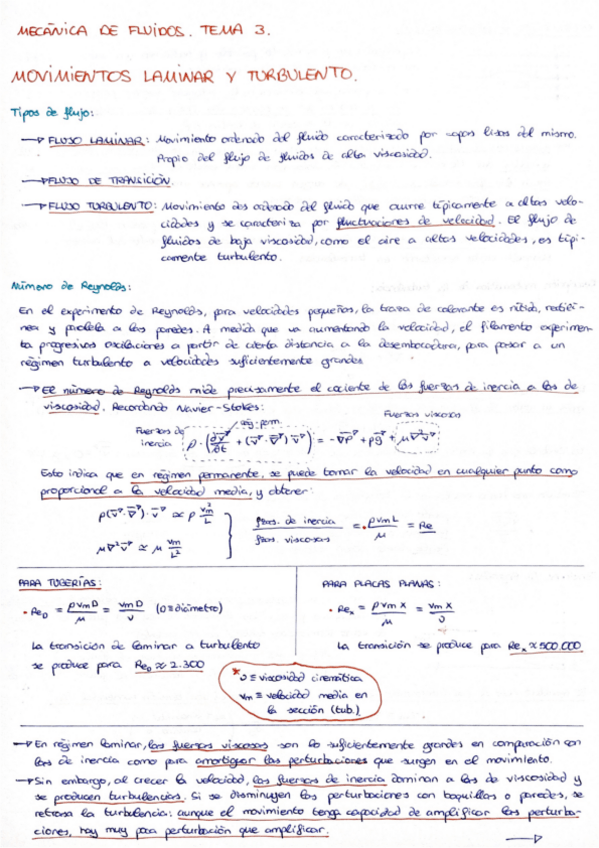 MECÁNICA DE FLUIDOS. TEMA 3.
MOVIMIENTOS LAMINAR Y TURBULENTO.
Tipos de flujo:
→ FLUJO LAMINAR: Movimiento ordenado del fluido caracterizado por capas lisas del mismo.
Propio del flujo de fluidos de alta viscosidad.
→ FLUJO DE TRANSICIÓN.
→ FLUJO TURBULENTO: Movimiento desordenado del fluido que ocurre típicamente a altas velo-
cidades y se caracteriza por fluctuaciones de velocidad. El flujo de
fluidos de baja viscosidad, como el aire a altas velocidades, es típi-
camente turbulento.
Número de Reynolds:
En el experimento de Reynolds, para velocidades pequeñas, la traza de colorante es nítida, rectilí-
nea y paralela a las paredes. A medida que va aumentando la velocidad, el filamento experimen-
ta progresivas oscilaciones a partir de cierta distancia a la desembocadura, para pasar a un
régimen turbulento a velocidades suficientemente grandes
→ El número de Reynolds mide precisamente el cociente de las fuerzas de inercia a las de
viscosidad. Recordando Navier-Stokes:
reg. perm. Fuerzas viscosas
Fuerzas de
inercia ρ·(∂v⃗/∂t + (v⃗·∇⃗)v⃗) = -∇⃗P + ρg⃗ + μ∇²v⃗
Esto indica que en régimen permanente, se puede tomar la velocidad en cualquier punto como
proporcional a la velocidad media, y obtener:
ρ(v⃗·∇⃗)·v⃗ ∝ ρ vm²/L
μ∇²v⃗ ≃ μ vm/L²
fzas. de inercia / fzas. viscosas = ρvmL/μ = Re
PARA TUBERÍAS:
• Re_D = ρvmD/μ = vmD/ν (D≡diámetro)
La transición de laminar a turbulento
se produce para Re_D ≈ 2.300
PARA PLACAS PLANAS:
• Re_x = ρvmx/μ = vmx/ν
La transición se produce para Re_x ≈ 500.000
* ν ≡ viscosidad cinemática
vm ≡ velocidad media en
la sección (tub.)
→ En régimen laminar, las fuerzas viscosas son lo suficientemente grandes en comparación con
las de inercia como para amortiguar las perturbaciones que surgen en el movimiento.
→ Sin embargo, al crecer la velocidad, las fuerzas de inercia dominan a las de viscosidad y
se producen turbulencias. Si se disminuyen las perturbaciones con boquillas o paredes, se
retrasa la turbulencia: aunque el movimiento tenga capacidad de amplificar las perturba-
ciones, hay muy poca perturbación que amplificar.
→